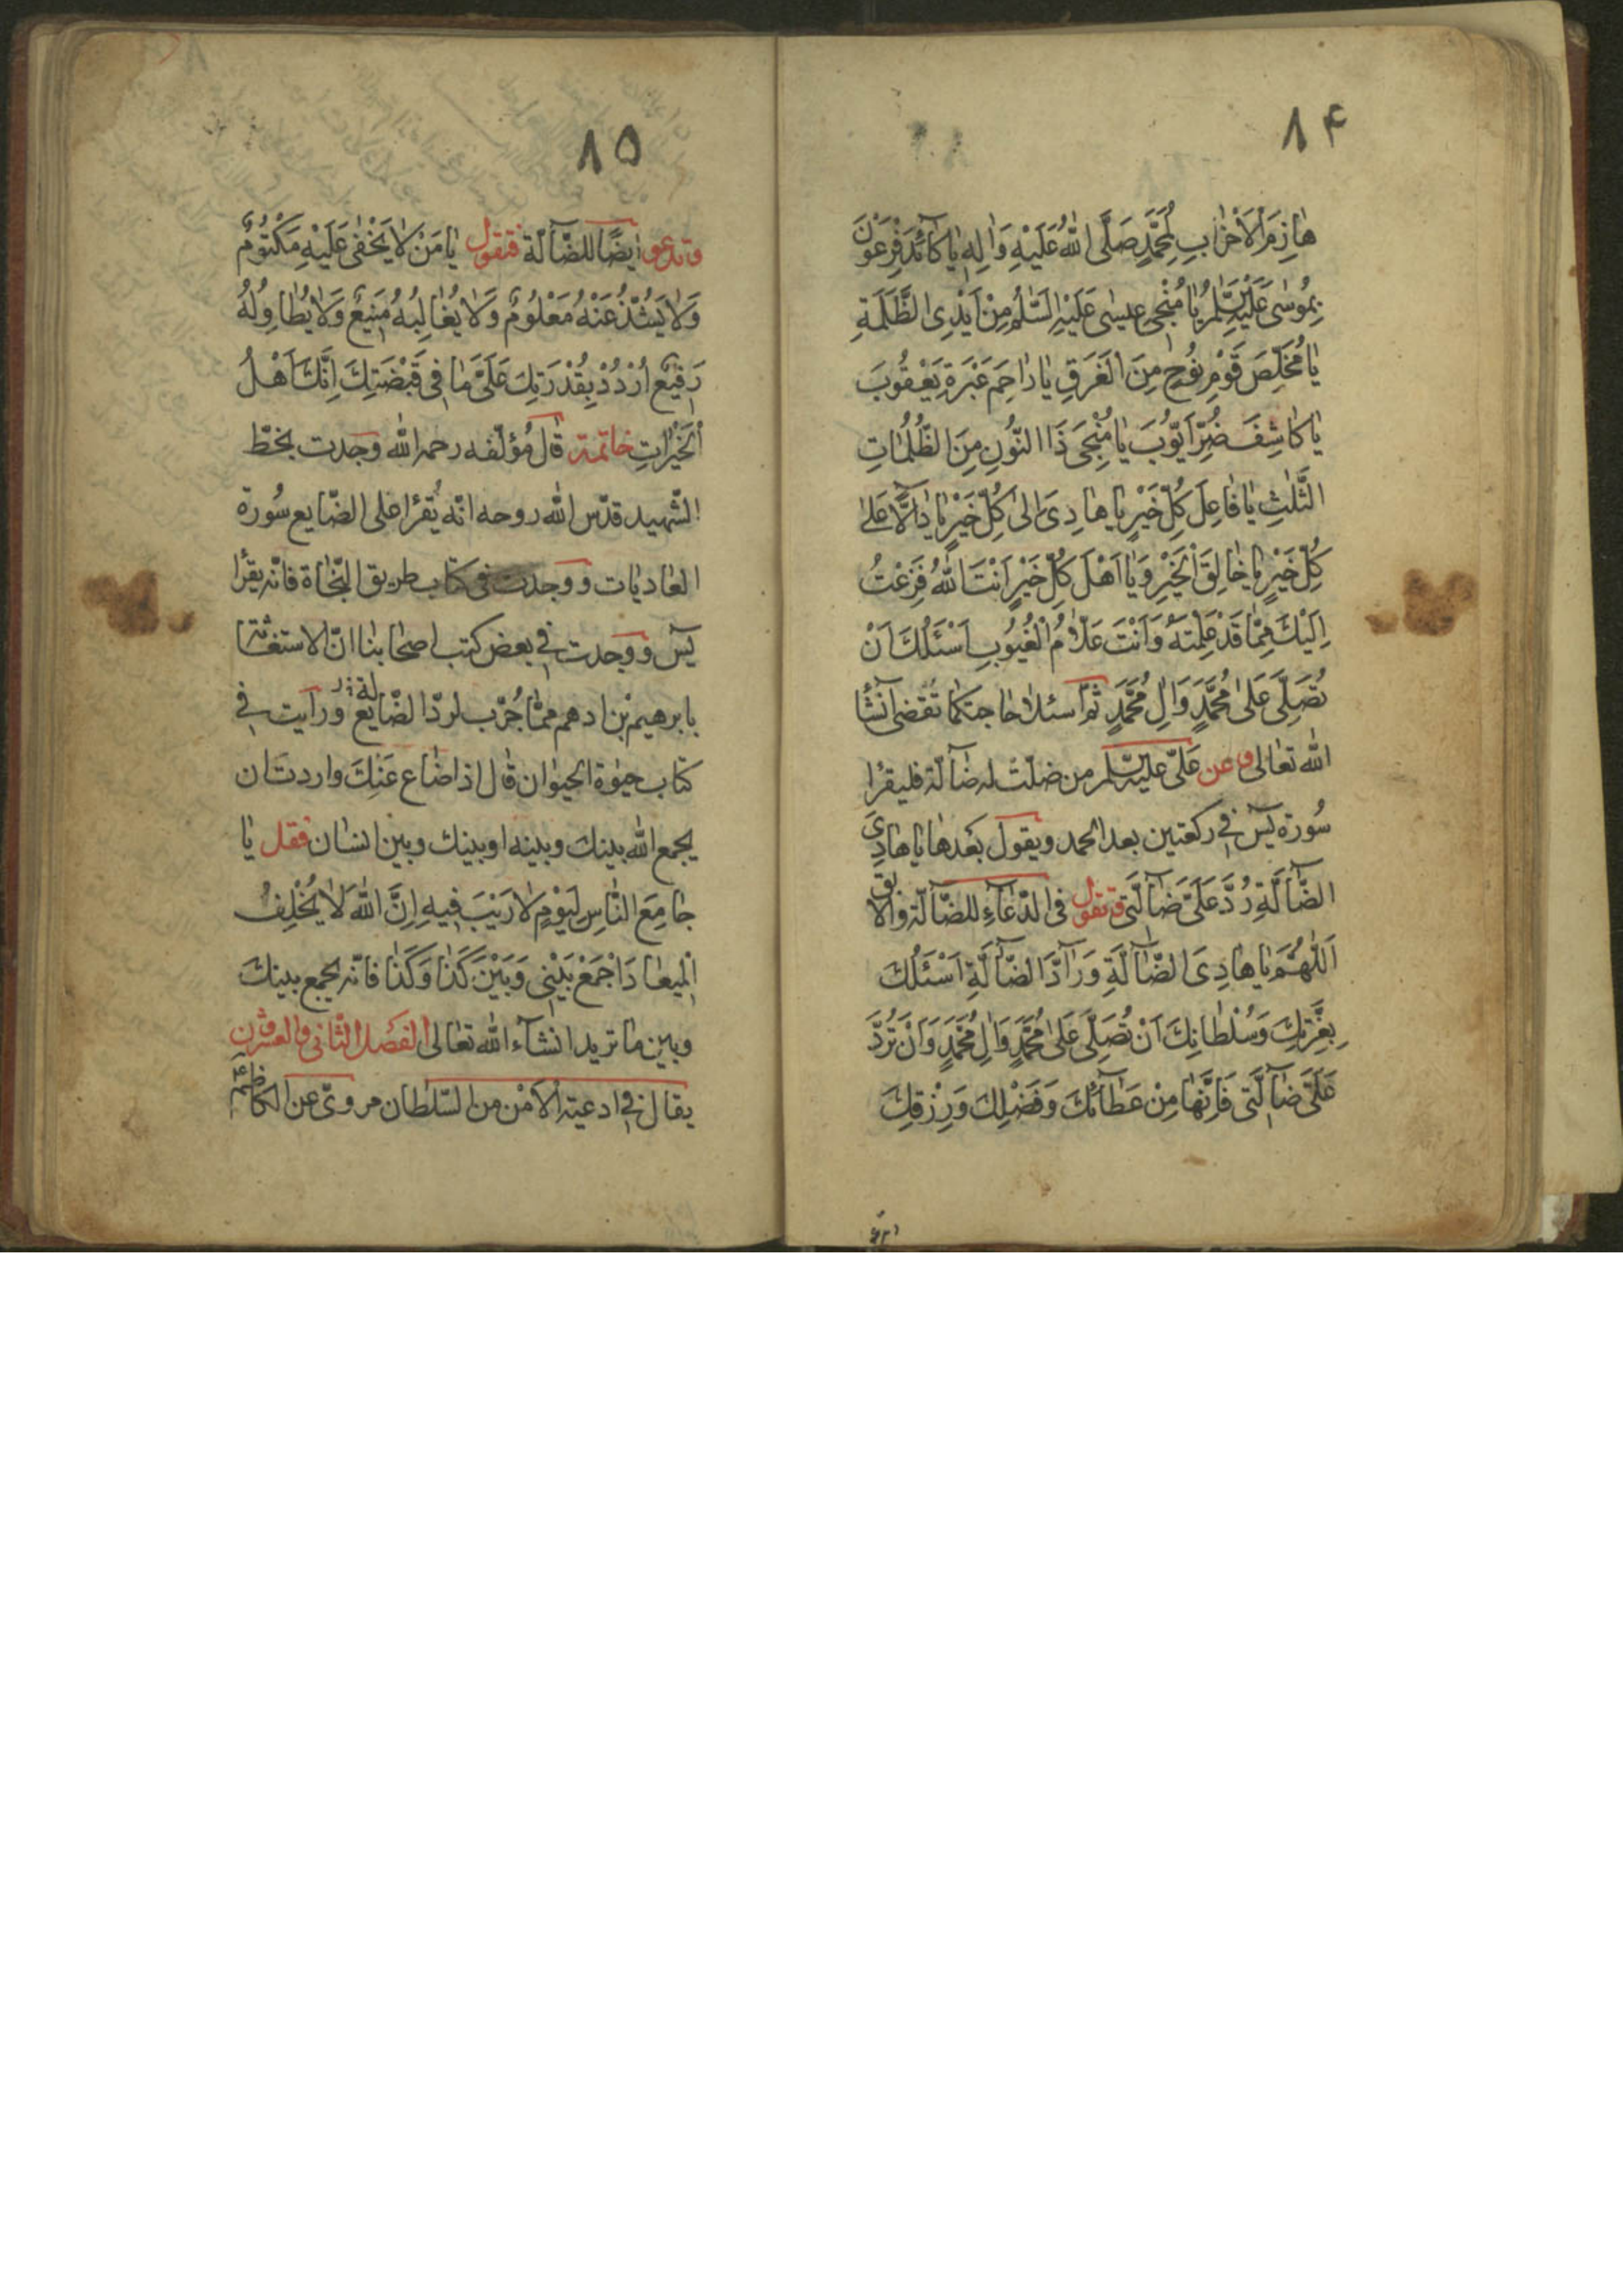 ۸۴
هٰازِمَ الْاَحْزٰابِ لِمُحَمَّدٍ صَلَّى اللهُ عَلَيْهِ وَاٰلِهِ يٰا كٰآئِدَ فِرْعَوْنَ
بِمُوسٰى عَلَيْهِ السَّلٰم يٰا مُنْجِىَ عيسٰى عَلَيْهِ السَّلٰمُ مِنْ اَيْدِى الظَّلَمَةِ
يٰا مُخَلِّصَ قَوْمِ نُوحٍ مِنَ الْغَرَقِ يٰا رٰاحِمَ عَبْرَةِ يَعْقُوبَ
يٰا كٰاشِفَ ضُرِّ اَيّوُبَ يٰا مُنْجِىَ ذَا النّوُنِ مِنَ الظُّلُمٰاتِ
الثَّلٰثِ يٰا فٰاعِلَ كُلِّ خَيْرٍ يٰا هٰادِىَ اِلىٰ كُلِّ خَيْرٍ يٰا دٰالًّا عَلىٰ
كُلِّ خَيْرٍ يٰا خٰالِقَ الْخَيْرِ وَيٰا اَهْلَ كُلِّ خَيْرٍ اَنْتَ اللهُ فَزَعْتُ
اِلَيْكَ مِمّٰا قَدْ عَلِمْتَهُ وَاَنْتَ عَلّٰامُ الْغُيُوبِ اَسْئَلُكَ اَنْ
تُصَلِّىَ عَلىٰ مُحَمَّدٍ وَاٰلِ مُحَمَّدٍ ثمّ اسئلا حاجتكما تقضى انشأ
الله تعالى وعن علىّ عليه السّلم من ضلّت له ضٰآلّة فليقرا
سُورة يٓس فى ركعتين بعد الحمد ويقول بَعدها يٰا هٰادِىَ
الضّٰآلَّةِ رُدَّ عَلَىَّ ضٰآلَّتى وتقول فى الدّعٰاءِ للضّٰآلّة والآبق
اَللّٰهُمَّ يٰا هٰادِىَ الضّٰآلَّةِ وَرٰآدَّ الضّٰآلَّةِ اَسْئَلُكَ
بِعِزَّتِكَ وَسُلْطٰانِكَ اَنْ تُصَلِّىَ عَلىٰ مُحَمَّدٍ وَاٰلِ مُحَمَّدٍ وَاَنْ تَرُدَّ
عَلَىَّ ضٰآلَّتى فَاِنَّهٰا مِنْ عَطٰآئِكَ وَفَضْلِكَ وَرِزْقِكَ
۸۵
وتدعو ايضًا للضّٰآلّة فتقول يٰا مَنْ لٰا يَخْفىٰ عَلَيْهِ مَكْتُومٌ
وَلٰا يَشُذُّ عَنْهُ مَعْلُومٌ وَلٰا يُغٰالِبُهُ مَنِيعٌ وَلٰا يُطٰاوِلُهُ
رَفيعٌ اُرْدُدْ بِقُدْرَتِكَ عَلَىَّ مٰا فى قَبْضَتِكَ اِنَّكَ اَهْلُ
الْخَيْرٰاتِ خاتمة قال مُؤلّفه رحمه الله وجدت بخطّ
الشّهيد قدّس الله روحه انّه يُقرٔا على الضّايع سُورة
العٰاديٰات ووجدت فى كتاب طريق النّجٰاة فانّه يقرأ
يٓس ووجدت فى بعض كتب اصحٰابنٰا انّ الاستغٰاثة
بابرهيم بْن ادهم ممّٰا جُرّب لردّ الضّٰايع ورأيت فى
كتٰاب حيٰوة الحيوٰان قٰال اذا ضٰاع عَنِكَ واردتَ ان
يجمع الله بينك وبينه او بينك وبين انسٰان فقل يٰا
جٰامِعَ النّٰاسِ لِيَوْمٍ لٰا رَيْبَ فيهِ اِنَّ اللهَ لٰا يُخْلِفُ
الْميعٰادَ اجْمَعْ بَيْنى وَبَيْنَ كَذٰا وَكَذٰا فانّه يجمع بينك
وبين مٰا تريد انشآء الله تعٰالى الفصل الثّانى والعشرون
يقال فى ادعية الاَمْن من السّلطان مروىّ عن الكاظم ع